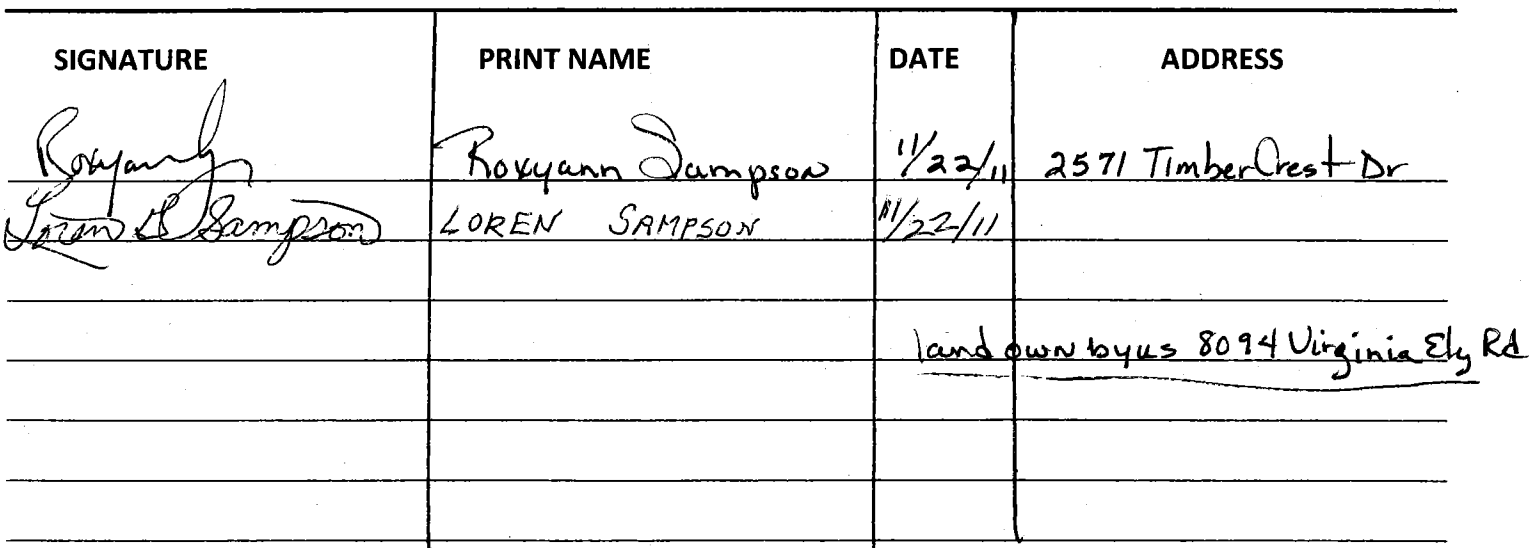 SIGNATURE PRINT NAME DATE ADDRESS
Roxyann Sampson 11/22/11 2571 TimberCrest Dr
Loren G Sampson LOREN SAMPSON 11/22/11
land own by us 8094 Virginia Ely Rd